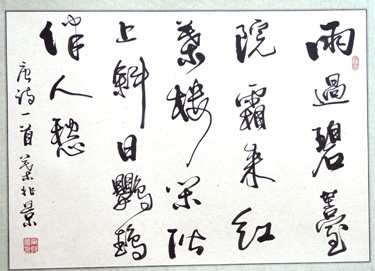 雨過碧薹
院霜來紅
葉樓閑階
上斜日鸚鵡
伴人愁
唐詩一首